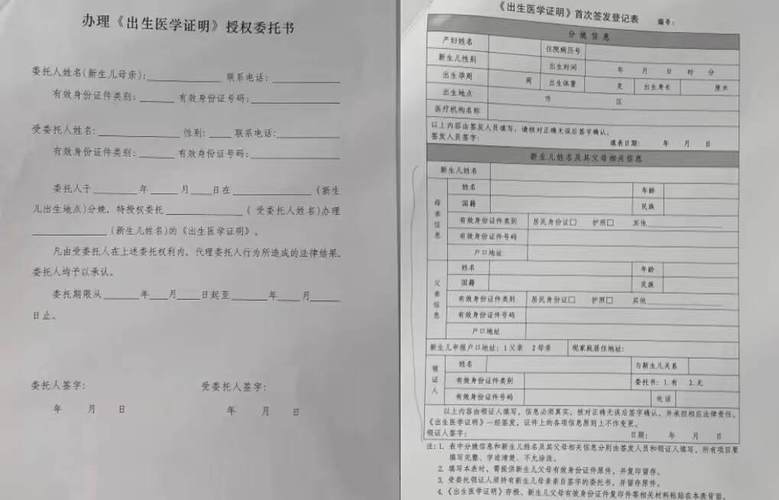 办理《出生医学证明》授权委托书
委托人姓名(新生儿母亲):______ 联系电话:______
有效身份证件类别:______ 有效身份证号码:______
受委托人姓名:______ 性别:____ 联系电话:______
有效身份证件类别:______ 有效身份证件号码:______
委托人于______年___月___日在______(新生
儿出生地点)分娩,特授权委托______(受委托人姓名)办理
______(新生儿姓名)的《出生医学证明》。
凡由受委托人在上述委托权利内,代理委托人行为所造成的法律结果,
委托人均予以承认。
委托期限从______年___月___日起至______年___月___
日止。
委托人签字: 受委托人签字:
年 月 日 年 月 日
《出生医学证明》首次签发登记表 编号:
分娩信息
产妇姓名 住院病历号
新生儿性别 出生时间 年 月 日 时 分
出生孕周 周 出生体重 克 出生身长 厘米
出生地点 市 区
医疗机构名称
以上内容由签发人员填写,请核对正确无误后签字确认。
签发人员签字: 填表日期: 年 月 日
新生儿姓名及其父母相关信息
新生儿姓名
母亲信息
姓名 年龄
国籍 民族
有效身份证件类别 居民身份证□ 护照□ 其他
有效身份证件号码
户口地址
父亲信息
姓名 年龄
国籍 民族
有效身份证件类别 居民身份证□ 护照□ 其他
有效身份证件号码
户口地址
新生儿申报户口地址:1父亲 2母亲 现家庭居住地址:
领证人
姓名 与新生儿关系
有效身份证件类别 委托书:1.有 2.无
有效身份证件号码 电话
以上内容由领证人填写,信息必须真实,核对正确无误后签字确认,并承担相应法律责任。
《出生医学证明》一经签发,证件上的各项信息原则上不作变更。
领证人签字: 日期: 年 月 日
注:1. 表中分娩信息和新生儿姓名及其父母相关信息分别由签发人员和领证人填写,所有项目要
填写完整、字迹清楚、不允涂改。
2. 填写本表时,需提供新生儿父母有效身份证件原件,并复印留存。
3. 受委托领证人须持有新生儿母亲亲自签字的委托书,并留存原件。
4.《出生医学证明》存根、新生儿父母有效身份证件复印件等相关材料粘贴在本表背面。